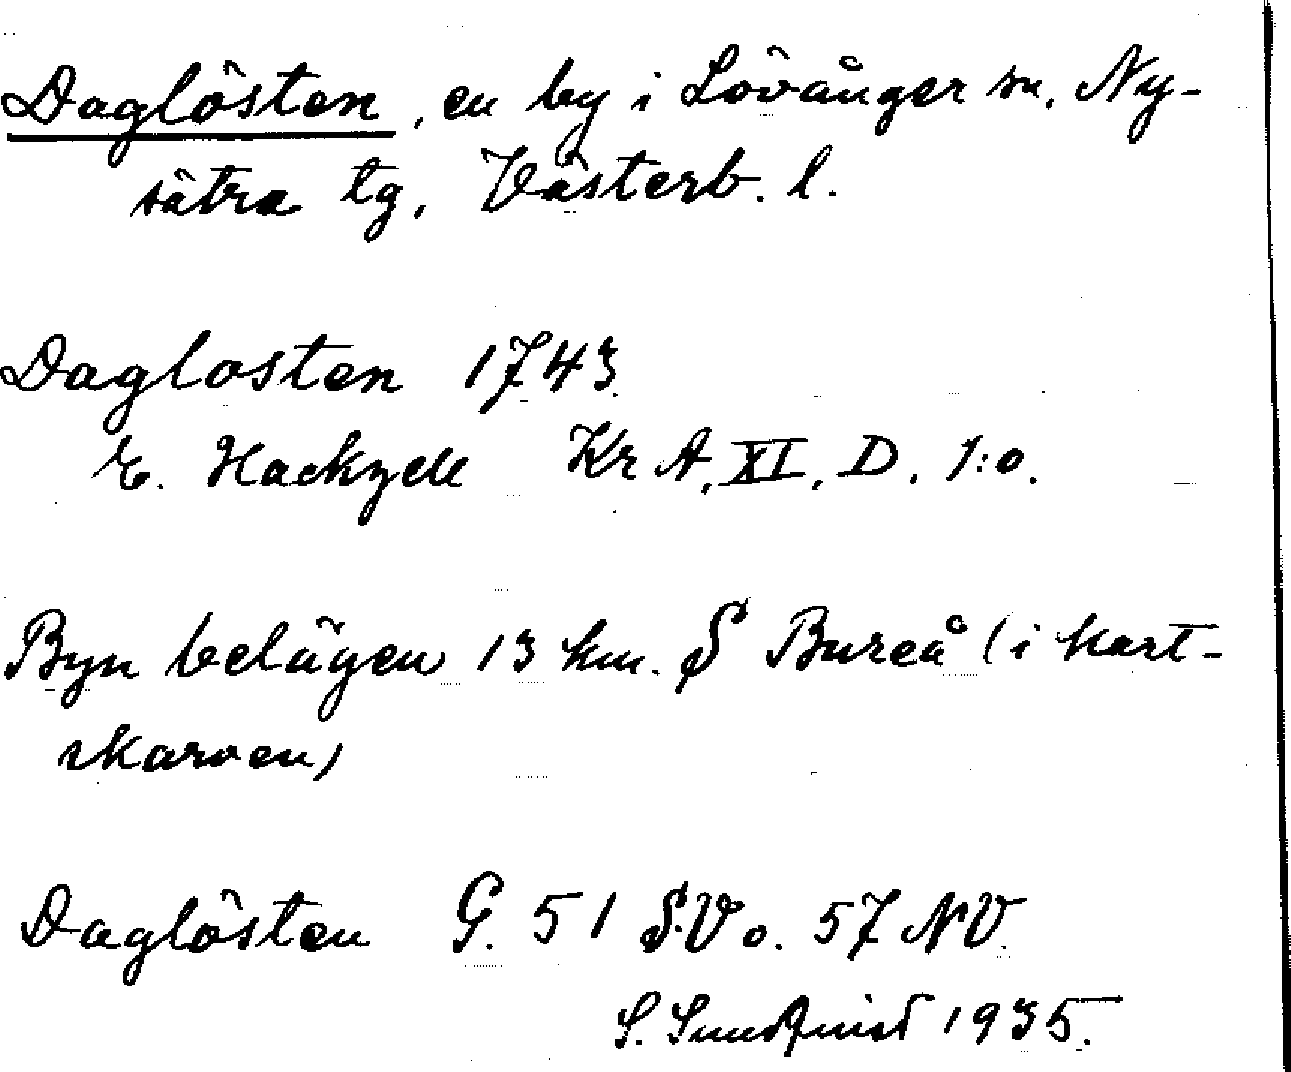 Daglösten, en by i Lövånger sn, Ny-
sätra tg, Västerb. l.
Daglosten 1743
E. Hackzell Kr A, XI, D. 1:o.
Byn belägen 13 km. S Bureå (i kart-
skarven)
Daglösten G. 51 S.V o. 57 NV.
S. Sundquist 1935.